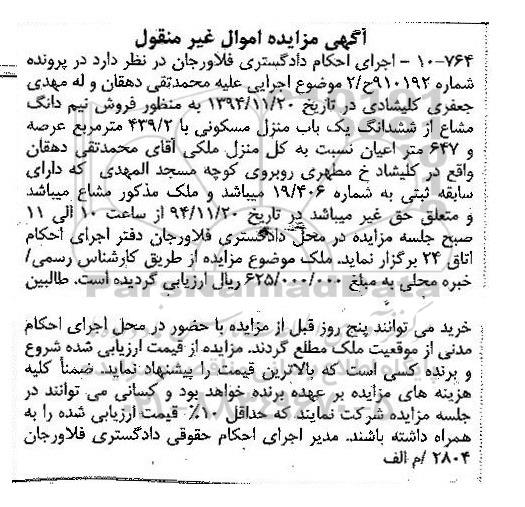 آگهی مزایده اموال غیر منقول
۱۰-۷۶۴ - اجرای احکام دادگستری فلاورجان در نظر دارد در پرونده
شماره ۹۱۰۱۹۲ج/۲ موضوع اجرایی علیه محمدتقی دهقان و له مهدی
جعفری کلیشادی در تاریخ ۱۳۹۴/۱۱/۲۰ به منظور فروش نیم دانگ
مشاع از ششدانگ یک باب منزل مسکونی با ۴۳۹/۲ مترمربع عرصه
و ۶۴۷ متر اعیان نسبت به کل منزل ملکی آقای محمدتقی دهقان
واقع در کلیشاد خ مطهری روبروی کوچه مسجد المهدی که دارای
سابقه ثبتی به شماره ۱۹/۴۰۶ میباشد و ملک مذکور مشاع میباشد
و متعلق حق غیر میباشد در تاریخ ۹۴/۱۱/۲۰ از ساعت ۱۰ الی ۱۱
صبح جلسه مزایده در محل دادگستری فلاورجان دفتر اجرای احکام
اتاق ۲۴ برگزار نماید. ملک موضوع مزایده از طریق کارشناس رسمی/
خبره محلی به مبلغ ۶۲۵/۰۰۰/۰۰۰ ریال ارزیابی گردیده است. طالبین
ParsNamadData
خرید می توانند پنج روز قبل از مزایده با حضور در محل اجرای احکام
مدنی از موقعیت ملک مطلع گردند. مزایده از قیمت ارزیابی شده شروع
و برنده کسی است که بالاترین قیمت را پیشنهاد نماید. ضمناً کلیه
هزینه های مزایده بر عهده برنده خواهد بود و کسانی می توانند در
جلسه مزایده شرکت نمایند که حداقل ۱۰٪ قیمت ارزیابی شده را به
همراه داشته باشند. مدیر اجرای احکام حقوقی دادگستری فلاورجان
۲۸۰۴ /م الف